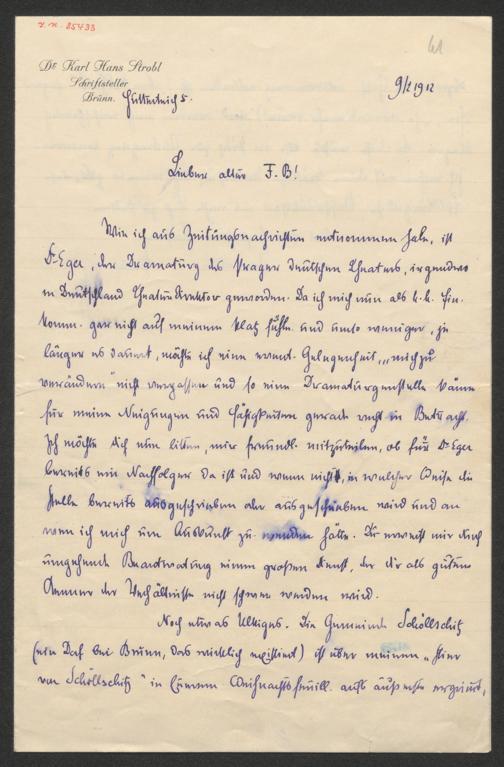 J.N. 85433
61
Dr Karl Hans Strobl
Schriftsteller
Brünn.
9/2 1912
Lieber alter F. B!
Wie ich aus Zeitungsnachrichten entnommen habe, ist
Dr Eger, der Dramaturg des Prager deutschen Theaters, irgendwo
in Deutschland Theaterdirektor geworden. Da ich mich nun als k.k. Fin.
komm. gar nicht auf meinem Platz fühle und umso weniger, je
länger es dauert, möchte ich eine event. Gelegenheit, „mich zu
verändern" nicht verpassen und so eine Dramaturgenstelle käme
für meine Neigungen und Fähigkeiten gerade recht in Betracht.
Ich möchte dich nun bitten, mir freundl. mitzuteilen, ob für Dr Eger
bereits ein Nachfolger da ist und wenn nicht, in welcher Weise die
Stelle bereits ausgeschrieben oder ausgeschrieben wird und an
wen ich mich um Auskunft zu wenden hätte. Du erweist mir durch
umgehende Beantwortung einen großen Dienst, der dir als gutem
Kenner der Verhältnisse nicht schwer werden wird.
Noch etwas Ulkiges. Die Gemeinde Schöllschitz
(ein Dorf bei Brünn, das wirklich existiert) ist über meinen
von Schöllschitz" in Eurem Weihnachtsfeuill. aufs äußerste ergrimmt,